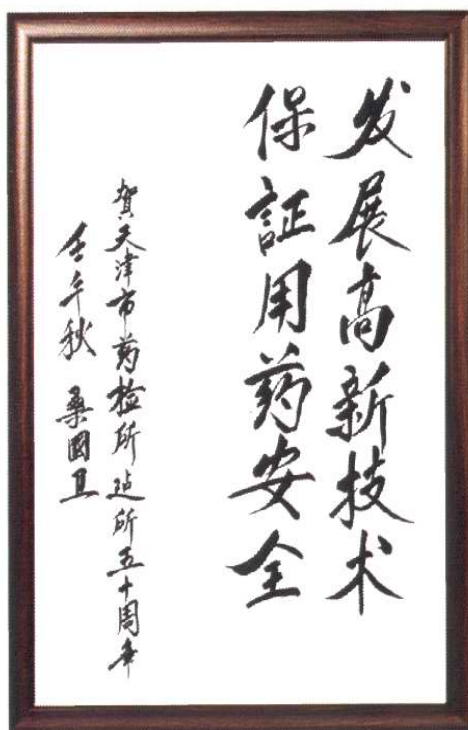 发展高新技术
保証用药安全
賀天津市药检所建所五十周年
壬午秋 桑國卫